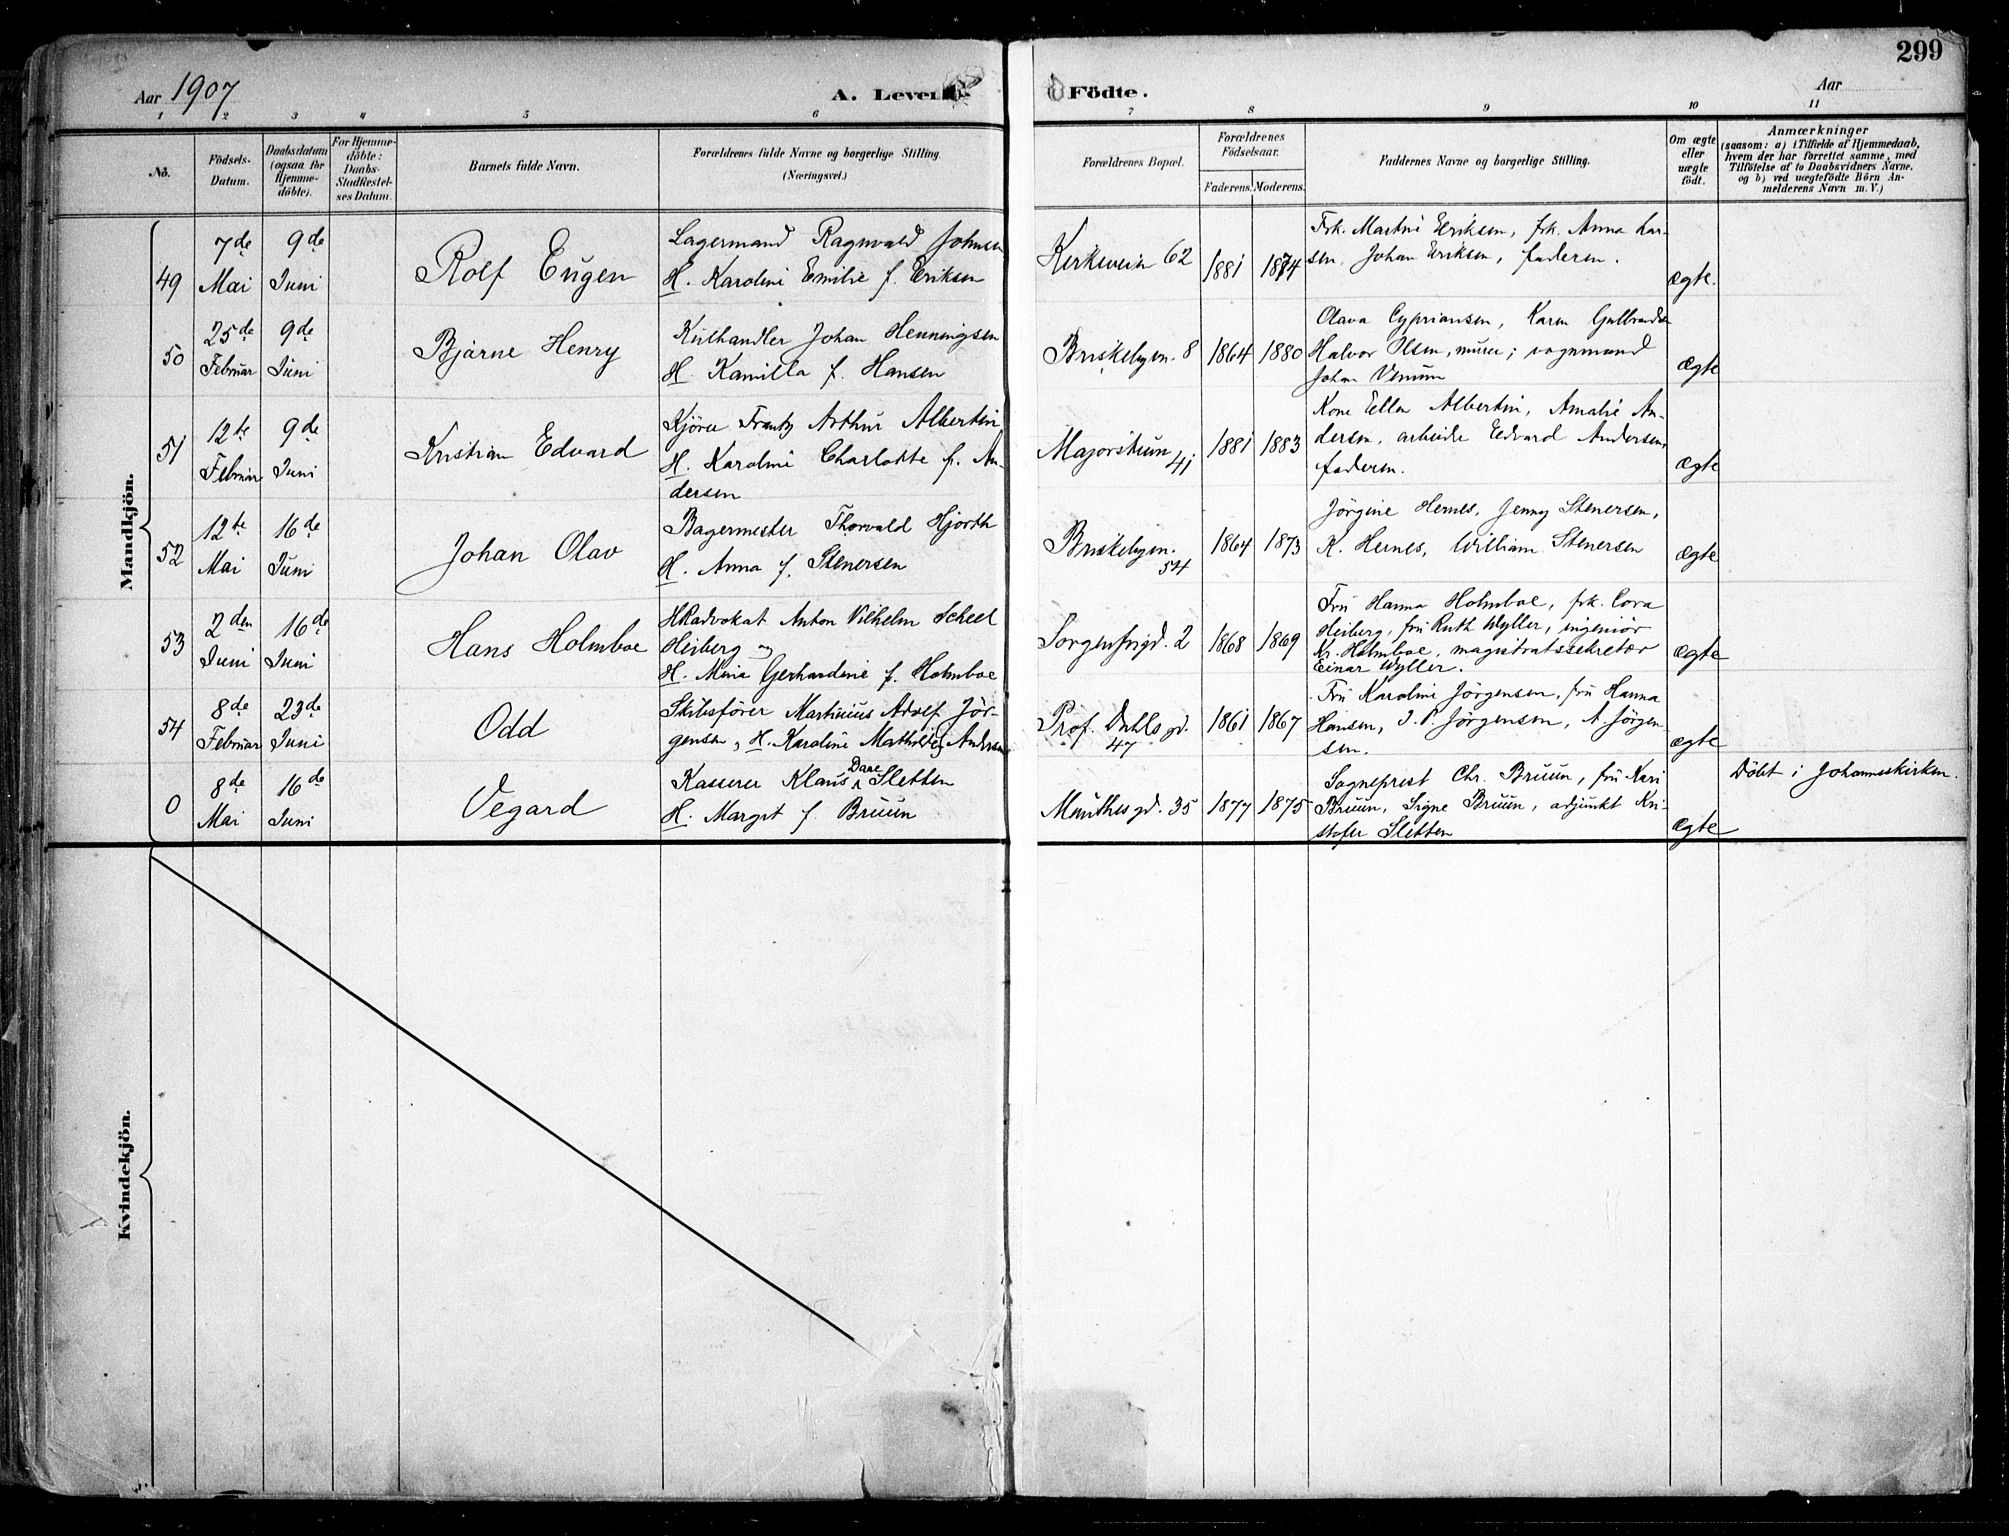 299
Aar 1907
A. Levende
Födte.
Aar
1 2 3 4 5 6 7 8 9 10 11
No.
Födsels-
Datum.
Daabsdatum
(ogsaa for
Hjemme-
döbte).
For Hjemme-
döbte:
Daabs-
Stadfæstel-
ses Datum.
Barnets fulde Navn.
Forældrenes fulde Navne og borgerlige Stilling.
(Næringsvei.)
Forældrenes Bopæl.
Forældrenes
Födselsaar.
Faderens. Moderens.
Faddernes Navne og borgerlige Stilling.
Om ægte
eller
uægte
födt.
Anmærkninger
(saasom: a) i Tilfælde af Hjemmedaab,
hvem der har forrettet samme, med
Tilföielse af to Daabsvidners Navne.
og b) ved uægtefödte Börn An-
melderens Navn m. V.)
Mandkjön.
49
7de
Mai
9de
Juni
Rolf Eugen
Lagermand Ragnvald Johnsen
H. Karoline Emilie f. Eriksen
Kirkeveien 62
1881 1874
Frk. Martine Eriksen, frk. Anna Lar-
sen, Johan Eriksen, faderen.
ægte.
50
25de
Februar
9de
Juni
Bjarne Henry
Kulhandler Johan Henningsen
H. Kamilla f. Hansen
Briskebyen. 8
1864 1880
Olava Cypriansen, Karen Gulbrandsen
Halvor Olsen, murer; vognmand
Johan
ægte
51
12te
Februar
9de
Juni
Kristian Edvard
Kjörer Frantz Arthur Albertin
H. Karoline Charlotte f. An-
dersen
Majorstuen
41
1881 1883
Kone Ellen Albertin, Amalie An-
dersen, arbeider Edvard Andersen,
faderen.
ægte
52
12te
Mai
16de
Juni
Johan Olav
Bagermester Thorvald Hjorth
H. Anna f. Stenersen
Briskebyen.
54
1864 1873
Jörgine Hernes, Jenny Stenersen,
K. Hernes, William Stenersen
ægte
53
2den
Juni
16de
Juni
Hans Holmboe
HRadvokat Anton Vilhelm Scheel
Heiberg og
H. Mina Gerhardine f. Holmboe
Sorgenfrigd. 2
1868 1869
Fru Hanna Holmboe, frk. Cora
Heiberg, fru Ruth Wyller, ingeniör
Kr. Holmboe, magistratssekretær
Einar Wyller.
ægte
54
8de
Februar
23de
Juni
Odd
Skibsförer Martinius Adolf Jör-
gensen, H. Karoline Mathilde f. Andersen
Prof. Dahls gd.
47
1861 1867
Fru Karoline Jörgensen, fru Hanna
Hansen, J. P. Jörgensen, A. Jörgen-
sen.
ægte
0
8de
Mai
16de
Juni
Vegard
Kasserer Klaus Daae Sletten
H. Margit f. Bruun
Munthes gd. 35
1877 1875
Sogneprest Chr. Bruun, fru Kari
Bruun, Signe Bruun, adjunkt Kri-
stofer Sletten
ægte
Döbt i Johanneskirken.
Kvindekjön.